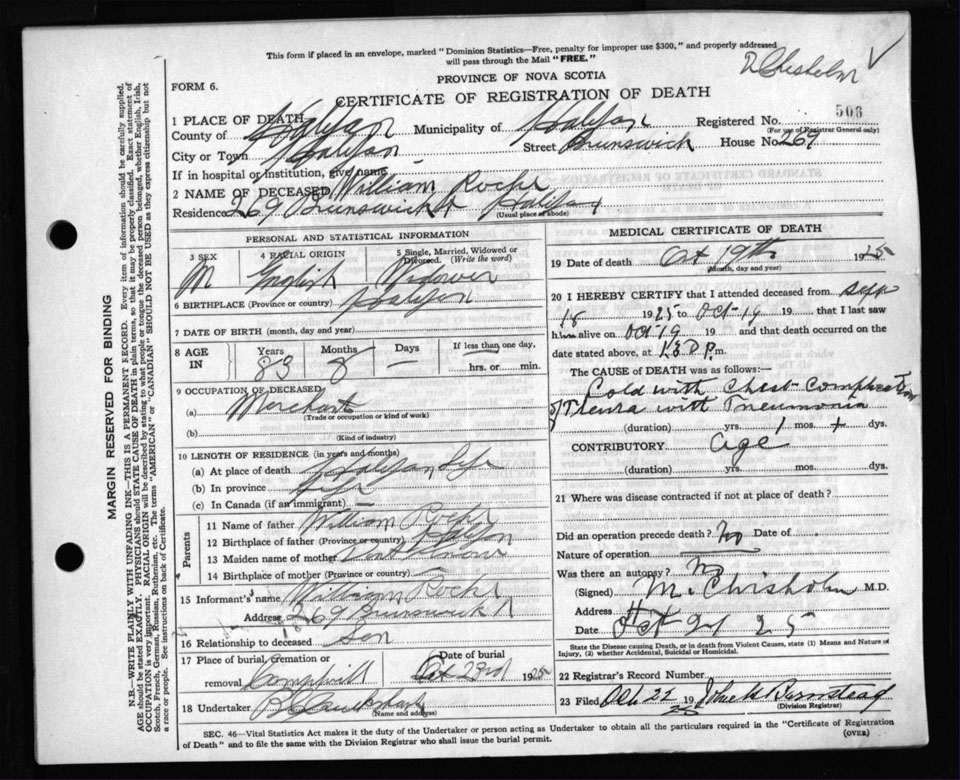 This form if placed in an envelope, marked "Dominion Statistics—Free, penalty for improper use $300," and properly addressed
will pass through the Mail "FREE."
D Chisholm
FORM 6.
PROVINCE OF NOVA SCOTIA
CERTIFICATE OF REGISTRATION OF DEATH
506
1 PLACE OF DEATH
County of Halifax Municipality of Halifax Registered No.
(For use of Registrar General only)
City or Town Halifax Street Brunswick House No. 269
If in hospital or Institution, give name
2 NAME OF DECEASED William Roche
Residence 269 Brunswick St Halifax
(Usual place of abode)
PERSONAL AND STATISTICAL INFORMATION
3 SEX 4 RACIAL ORIGIN 5 Single, Married, Widowed or Divorced. (Write the word)
M English Widower
6 BIRTHPLACE (Province or country) Halifax
7 DATE OF BIRTH (month, day and year)
8 AGE IN Years Months Days If less than one day,
83 8 — hrs. or min.
9 OCCUPATION OF DECEASED
(a) Merchant
(Trade or occupation or kind of work)
(b)
(Kind of industry)
10 LENGTH OF RESIDENCE (in years and months)
(a) At place of death Halifax Life
(b) In province Life
(c) In Canada (if an immigrant) —
Parents
11 Name of father William Roche
12 Birthplace of father (Province or country) Halifax
13 Maiden name of mother Not Known
14 Birthplace of mother (Province or country) —
15 Informant's name William Roche
Address 269 Brunswick St
16 Relationship to deceased Son
17 Place of burial, Cremation or removal Date of burial
Camphill Oct 23rd 1925
18 Undertaker
(Name and address)
MEDICAL CERTIFICATE OF DEATH
19 Date of death Oct 19th 1925
(Month, day and year)
20 I HEREBY CERTIFY that I attended deceased from Sept
18 1925 to Oct-19 19 that I last saw
him alive on Oct 19 19 and that death occurred on
date stated above, at P.m.
The CAUSE of DEATH was as follows:—
Cold with Chest Complication
with Pneumonia
(duration) yrs. 1 mos. + dys.
CONTRIBUTORY age
(duration) yrs. mos. dys.
21 Where was disease contracted if not at place of death?
Did an operation precede death? No Date of
Nature of operation
Was there an autopsy? No
(Signed) M. Chisholm M.D.
Address
Date Oct 25
State the Disease causing Death, or in death from Violent Causes, state (1) Means and Nature of
Injury, (2) whether Accidental, Suicidal or Homicidal.
22 Registrar's Record Number
23 Filed Oct 22 19 25 John H Barnstead
(Division Registrar)
SEC. 46—Vital Statistics Act makes it the duty of the Undertaker or person acting as Undertaker to obtain all the particulars required in the "Certificate of Registration
of Death" and to file the same with the Division Registrar who shall issue the burial permit.
(OVER)
MARGIN RESERVED FOR BINDING
N.B.—WRITE PLAINLY WITH UNFADING INK—THIS IS A PERMANENT RECORD. Every item of information should be carefully supplied.
AGE should be stated EXACTLY. PHYSICIANS should STATE CAUSE OF DEATH in plain terms, so that it may be properly classified. Exact statement of
OCCUPATION is very important. RACIAL ORIGIN will be described by stating to what people or tongue the deceased person belonged, whether English, Irish,
Scotch, French, German, Russian, Ruthenian, etc. The terms "AMERICAN" or "CANADIAN" SHOULD NOT BE USED as they express citizenship but not
a race or people. See instructions on back of Certificate.